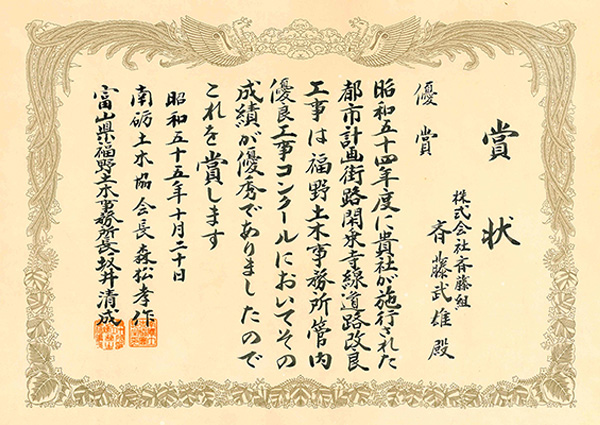 賞状
株式会社斉藤組
斉藤武雄殿
優賞
昭和五十四年度に貴社が施行された
都市計画街路開発寺線道路改良
工事は福野土木事務所管内
優良工事コンクールにおいてその
成績が優秀でありましたので
これを賞します
昭和五十五年十月二十日
南砺土木協会長森松孝作
富山県福野土木事務所長坂井清成